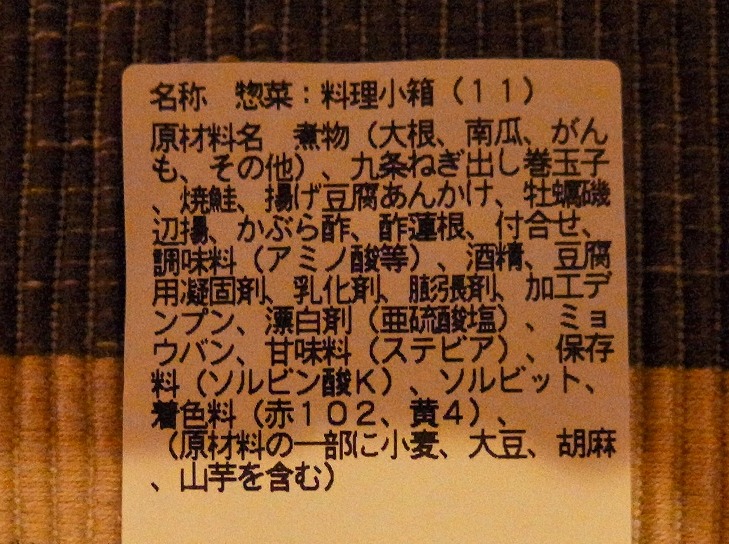 名称　惣菜：料理小箱（１１）
原材料名　煮物（大根、南瓜、がん
も、その他）、九条ねぎ出し巻玉子
、焼鮭、揚げ豆腐あんかけ、牡蠣磯
辺揚、かぶら酢、酢蓮根、付合せ、
調味料（アミノ酸等）、酒精、豆腐
用凝固剤、乳化剤、膨張剤、加工デ
ンプン、漂白剤（亜硫酸塩）、ミョ
ウバン、甘味料（ステビア）、保存
料（ソルビン酸Ｋ）、ソルビット、
着色料（赤１０２、黄４）、
（原材料の一部に小麦、大豆、胡麻
、山芋を含む）